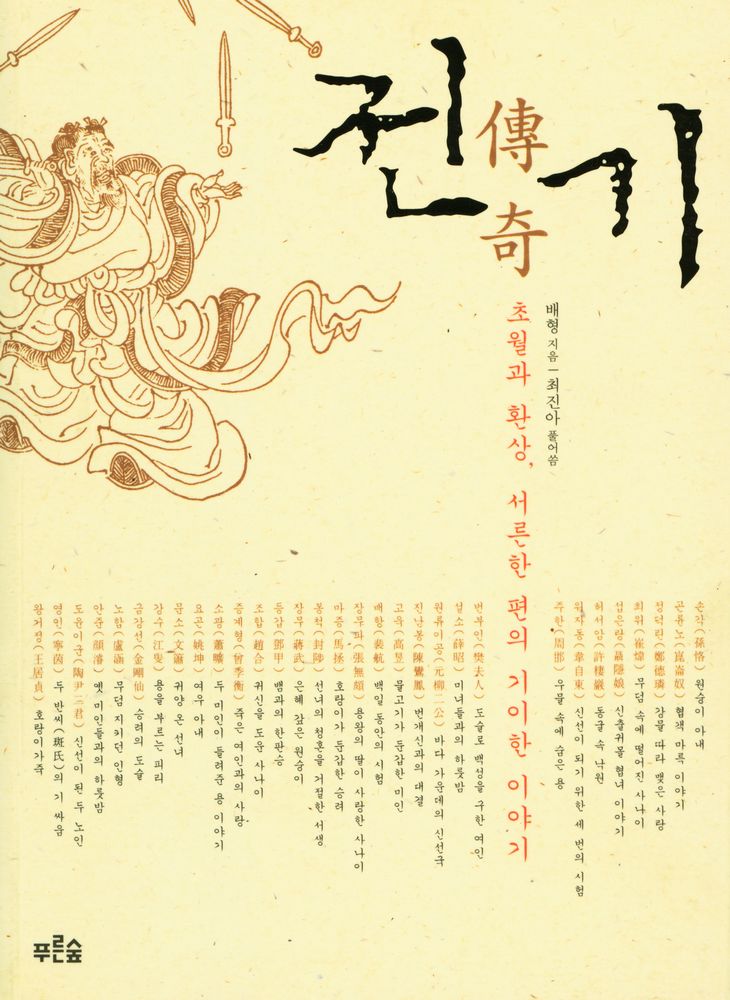 전기
傳奇
배형 지음 ─ 최진아 풀어씀
초월과 환상, 서른한 편의 기이한 이야기
손각(孫恪) 원숭이 아내
곤륜노(崑崙奴) 협객 마륵 이야기
정덕린(鄭德璘) 강물 따라 맺은 사랑
최위(崔煒) 무덤 속에 떨어진 사나이
섭은랑(聶隱娘) 신출귀몰 협녀 이야기
허서암(許棲巖) 동굴 속 낙원
위자동(韋自東) 신선이 되기 위한 세 번의 시험
주한(周邯) 우물 속에 숨은 용
번부인(樊夫人) 도술로 백성을 구한 여인
설소(薛昭) 미녀들과의 하룻밤
원류이공(元柳二公) 바다 가운데의 신선국
진난봉(陳鸞鳳) 번개신과의 대결
고욱(高昱) 물고기가 둔갑한 미인
배항(裴航) 백일 동안의 시험
장무파(張無頗) 용왕의 딸이 사랑한 사나이
마증(馬拯) 호랑이가 둔갑한 승려
봉척(封陟) 선녀의 청혼을 거절한 서생
장무(蔣武) 은혜 갚은 원숭이
등갑(鄧甲) 뱀과의 한판승
조합(趙合) 귀신을 도운 사나이
증계형(曾季衡) 죽은 여인과의 사랑
소광(蕭曠) 두 미인이 들려준 용 이야기
요곤(姚坤) 여우 아내
문소(文簫) 귀양 온 선녀
강수(江叟) 용을 부르는 피리
금강선(金剛仙) 승려의 도술
노함(盧涵) 무덤 지키던 인형
안준(顔濬) 옛 미인들과의 하룻밤
도윤이군(陶尹二君) 신선이 된 두 노인
영인(寧茵) 두 반씨(斑氏)의 기 싸움
왕거정(王居貞) 호랑이가죽
푸른숲